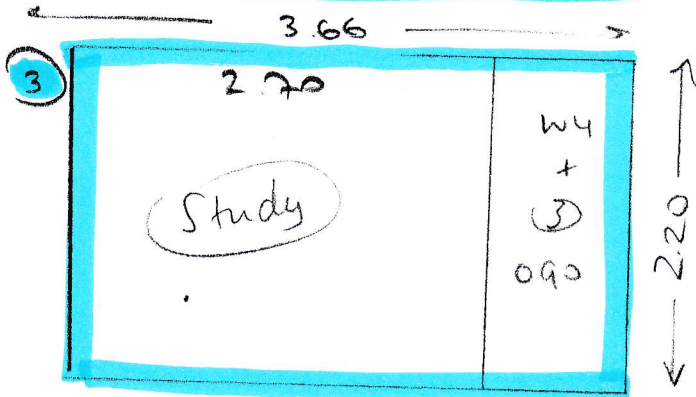 3.66
3
2.70
W4
+
Study
3
090
2.20